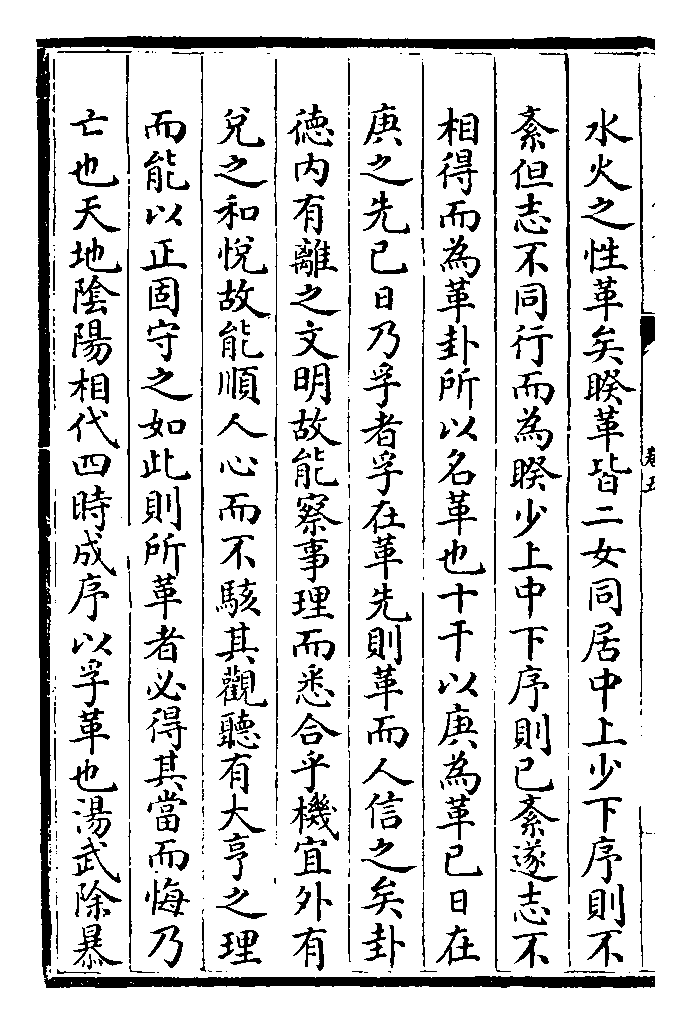 水火之性革矣睽革皆二女同居中上少下序則不
紊但志不同行而為睽少上中下序則已紊遂志不
相得而為革卦所以名革也十干以庚為革已日在
庚之先已日乃孚者孚在革先則革而人信之矣卦
徳内有離之文明故能察事理而悉合乎機宜外有
兌之和悅故能順人心而不駭其觀聽有大亨之理
而能以正固守之如此則所革者必得其當而悔乃
亡也天地陰陽相代四時成序以孚革也湯武除暴
卷五